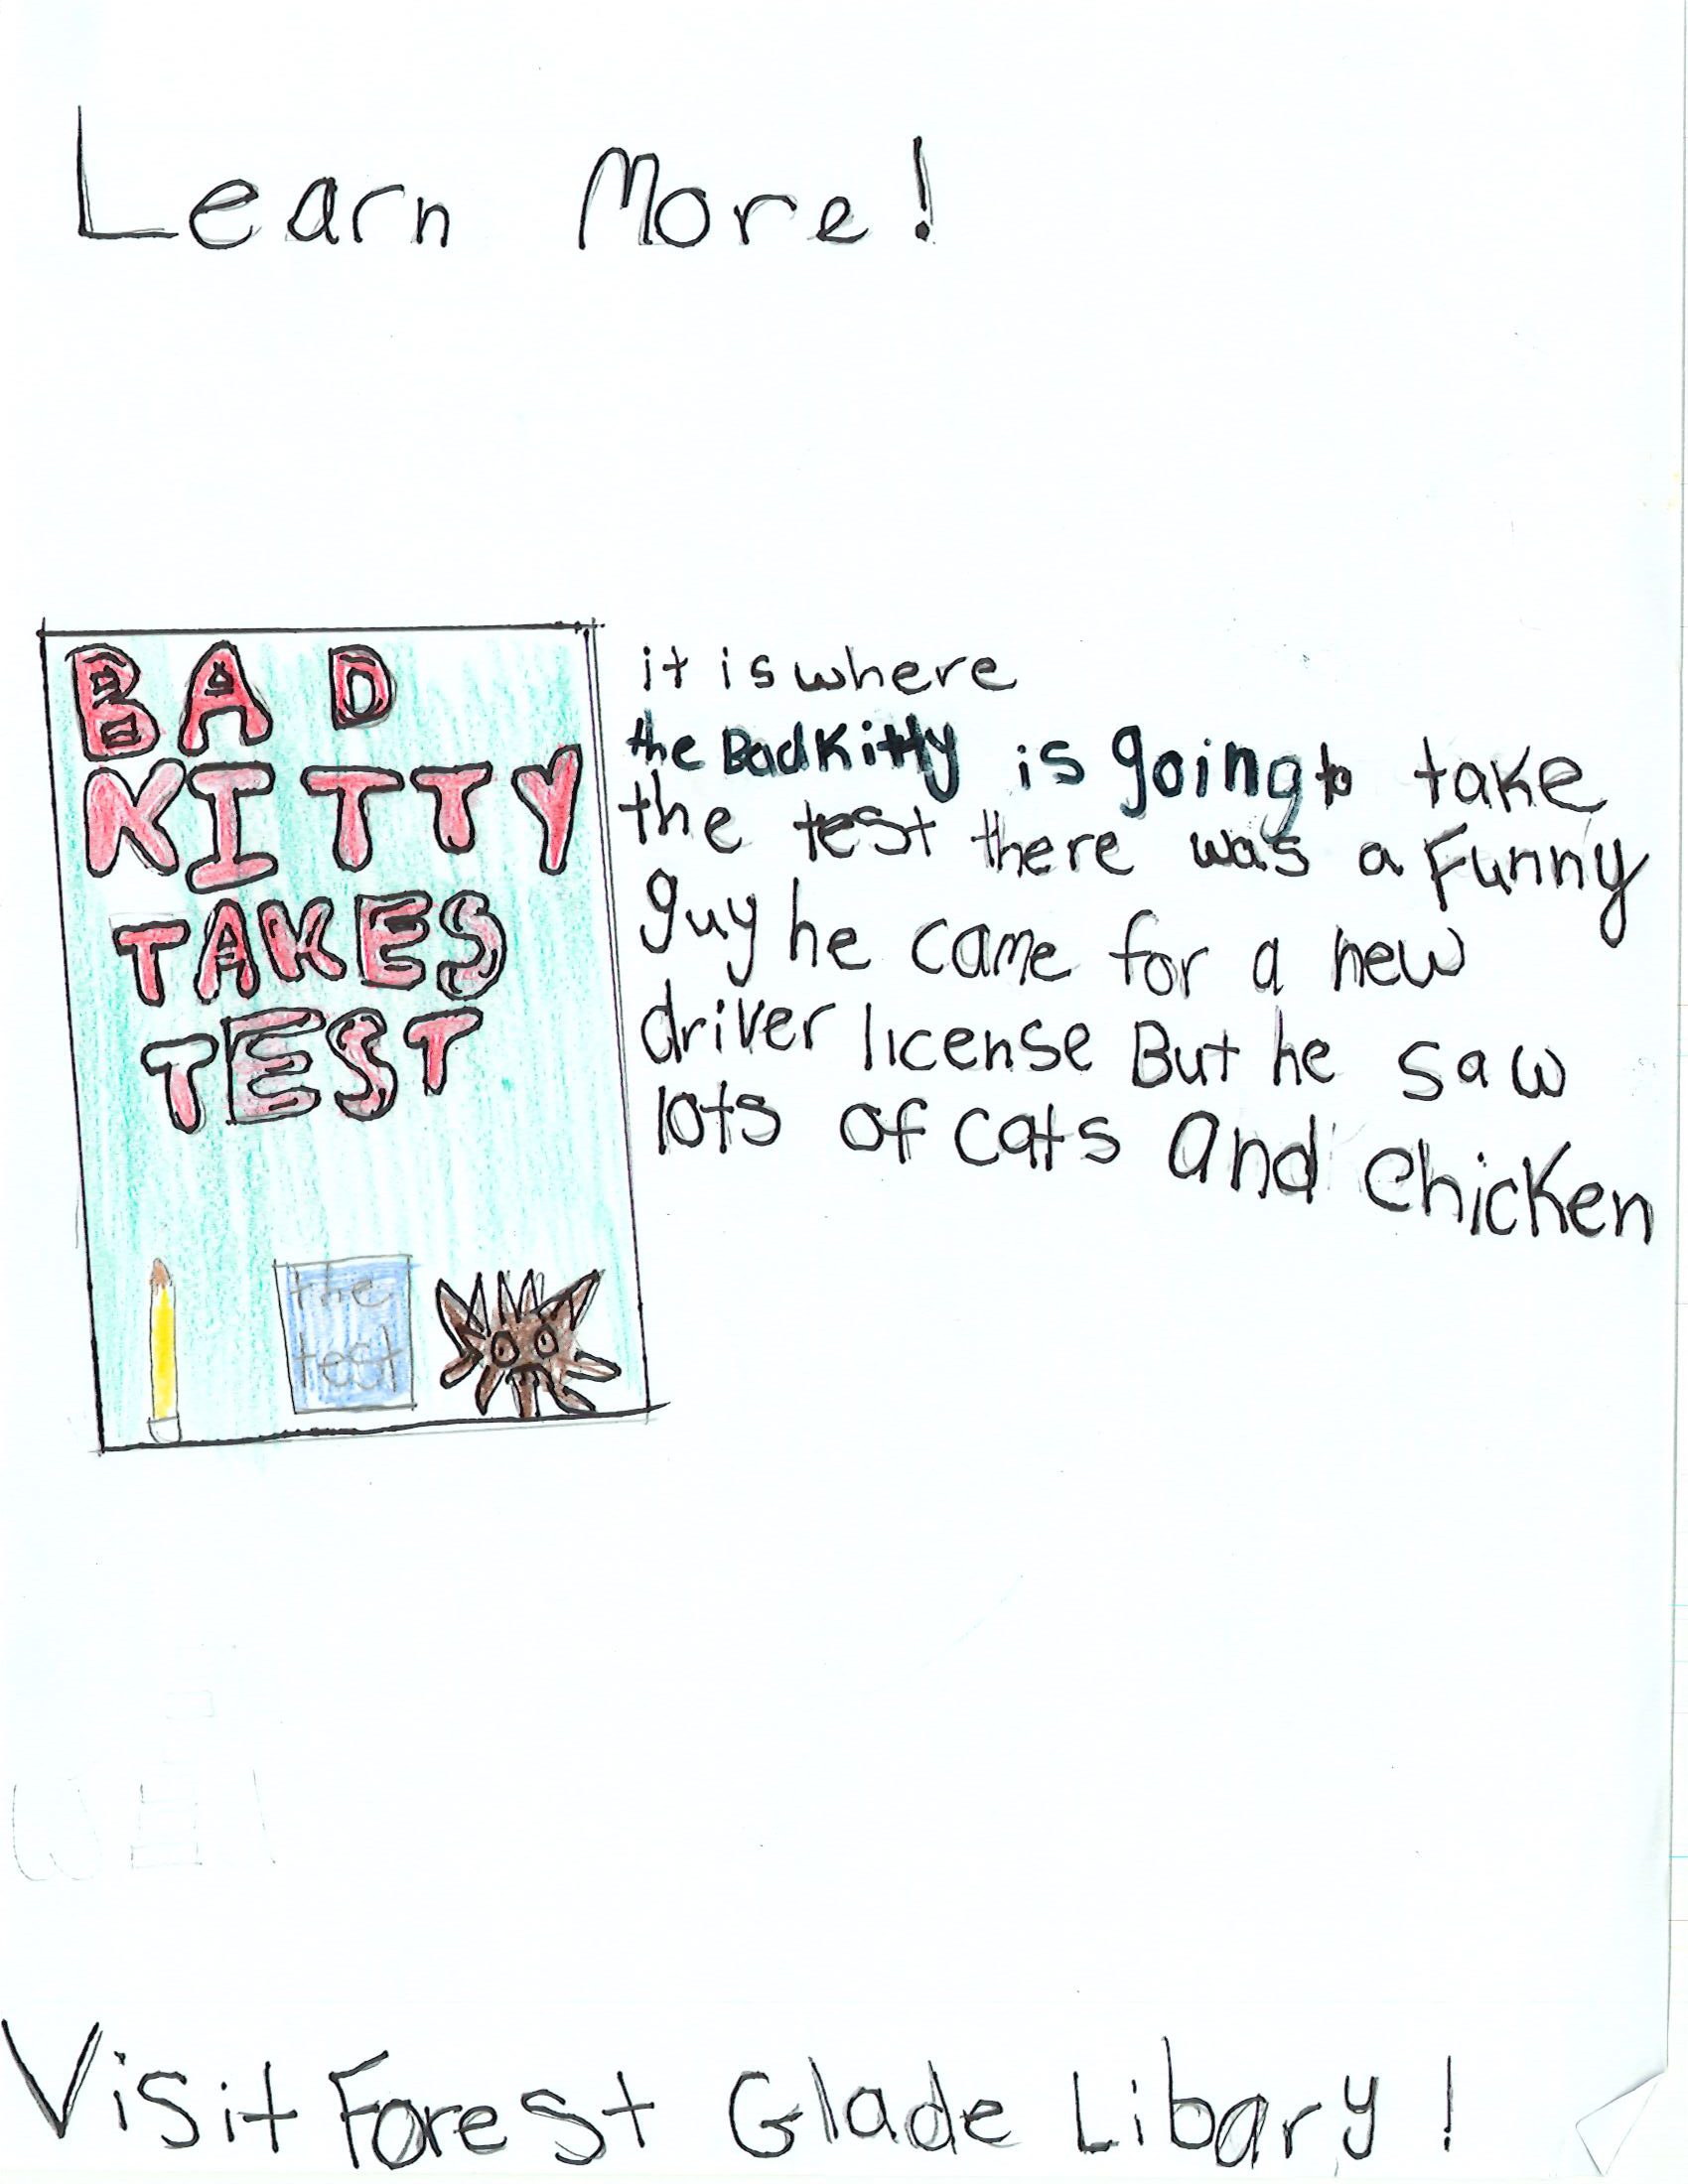 Learn More!
BAD
KITTY
TAKES
TEST
the
test
it is where
the Bad Kitty is going to take
the test there was a Funny
guy he came for a new
driver license But he saw
lots of cats and chicken
Visit Forest Glade Libary!